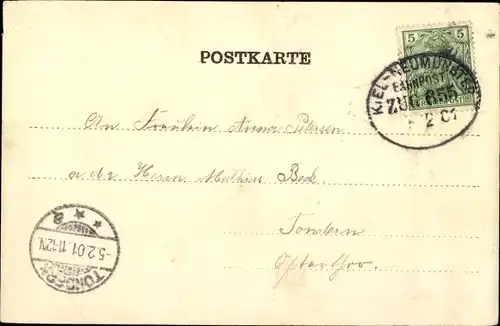 5 5
POSTKARTE
KIEL-NEUMÜNSTER
BAHNPOST
ZUG 655
2 01
An Fräulein Anna Petersen
a. d. Herrn Mathias Beck.
Tondern
Osterthor.
TONDERN
-5.2.01.11-12V.
* * a